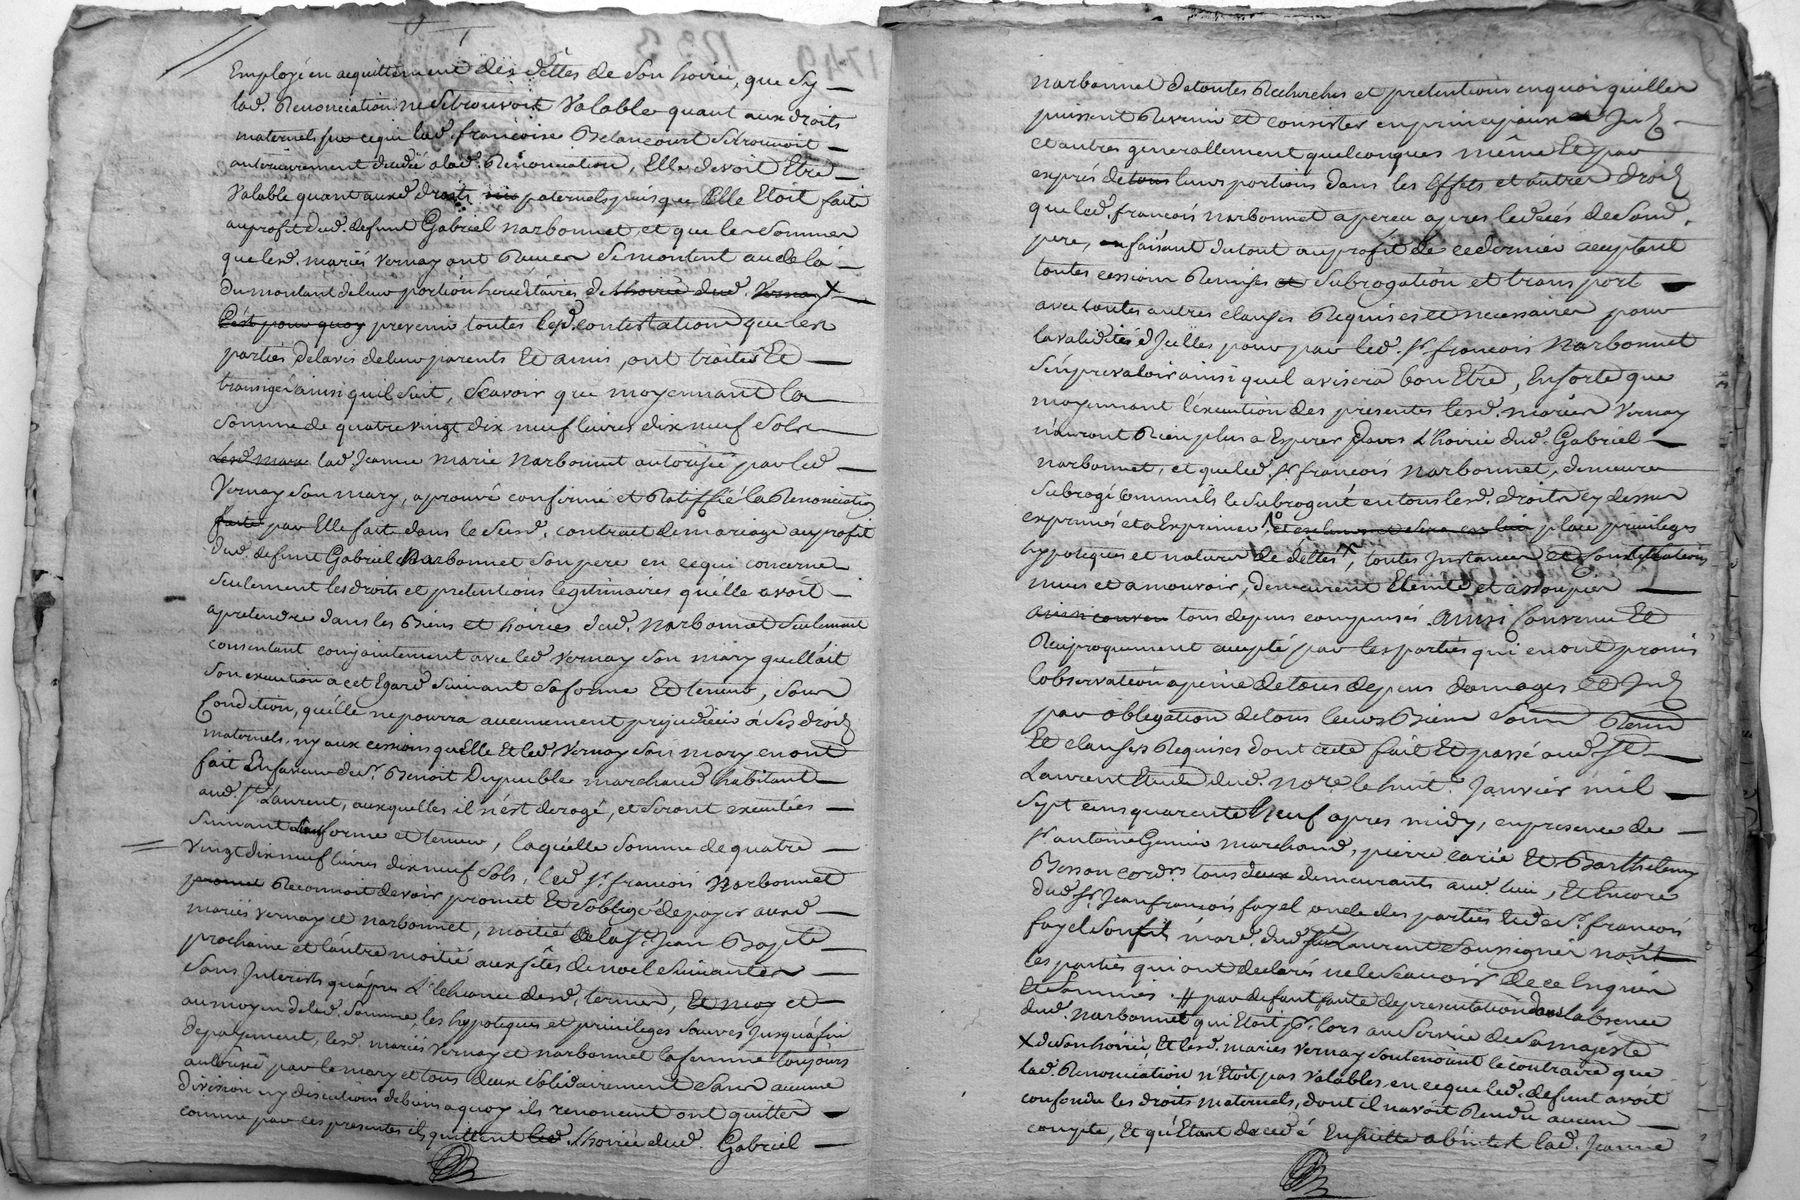 Employé en acquittement des dettes de son hoirie, que sy
lad. Renonciation ne se trouvoit Valable quant aux droits
maternels sur ce qui lad. françoise Belancourt se trouvoit
anterieurement decedée a lad. Renonciation, Elle devoit Etre
Valable quant auxd. droits paternels puis que Elle Etoit faite
au profit dud. defunt Gabriel narbonnet et que les sommes
que lesd. mariés Vernay ont Receues se montent au dela
du montant de leur portion hereditaires de lhoirie dud. Vernay X
C'est pour quoy prevenir toutes lesd. contestations que les
parties de lavis de leurs parents Et amis, ont traités Et
transigé ainsi quil suit, Scavoir que moyennant la
somme de quatre vingt dix neuf livres dix neuf sols
Lesd. mari lad. Jeanne Marie Narbonnet autorisée par led.
Vernay son mary, aprouvé confirmé et Ratiffié la Renonciation
faite par Elle fait dans le susd. contract de mariage au profit
dud. defunt Gabriel Narbonnet son pere en ce qui concerne
seulement les droits et pretentions legitimaires qu'elle avoit
a pretendre dans les Biens et hoiries dud. Narbonnet seulement
consentant conjointement avec led. Vernay son mary quell'ait
son execution a cet Egard suivant sa forme Et teneur, sous
Condition, quelle ne pourra aucunement prejudicier à ses droits
maternels, ny aux cessions qu'Elle Et led. Vernay son mary en ont
fait En faveur de sr. Benoit Dupuble marchand habitant
aud. St. Laurent, auxquelles il n'est derogé, et seront executées
suivant leur forme et teneur, laquelle somme de quatre
Vingt dix neuf livres dix neuf sols, led. sr. françois Narbonnet
promet Reconnoit devoir promet Et s'oblige de payer auxd.
mariés Vernay et Narbonnet, moitié a la St. Jean Bapte.
prochaine et l'autre moitié aux fêtes de noel suivantes
sans Interests qu'apres L'Echeance desd. termes, Et moy et
au moyen de lad. somme, les hypoteques et privileges sauves jusqu'a fin
de payement, lesd. mariés Vernay et narbonnet la femme toujours
autorisée par le mary et tous deux solidairement sans aucune
division ny discution de biens a quoy ils renoncent ont quitter
comme par ces presentes ils quittent led. lhoirie dud. Gabriel
narbonnet de toutes Recherches et pretentions en quoi quelles
puissent Revenir et consister en principaux Intz.
et autres generallement quelconques même Et par
exprés de tous leurs portions dans les Effets et autres droits
que led. françois narbonnet a perçu apres le deces de sond.
pere, en faisant du tout au profit de ce dernier acceptant
toutes cessions Remises et Subrogation et transport
avec toutes autres clauses Requises et necessaires pour
la validité d'Icelles pour par led. sr. françois Narbonnet
s'en prevaloir ainsi quel avisera bon Etre, En sorte que
moyennant l'execution des presentes lesd. mariés Vernay
n'auront Rien plus a Esperer dans L'hoirie dud. Gabriel
narbonnet, et que led. sr. françois Narbonnet, demeurera
subrogé comme ils le subrogent en tous lesd. droits cy dessus
exprimés et a Exprimer, place privileges
hypoteques et natures de dettes X, toutes Instances Et contestations
mues et a mouvoir, demeurent Eteintes et assoupies
ainsi conven tous depens compensés. Ainsi Convenu Et
Reciproquement accepté par les parties qui en ont promis
l'observation a peine de tous depens domages Et Intz
par obligation de tous leurs Biens soum Renon
Et clauses Requises dont acte fait Et passé aud. St.
Laurent Etude dud. Nore. le huit. Janvier mil
sept cens quarente Neuf apres midy, en presence de
sr. antoine Genin marchand, pierre carié Et Barthelemy
Besson cordrs. tous deux demeurants aud. lieu, Et Encore
dud. sr. Jean françois fayel oncle des parties Et de sr. françois
fayel son fils mard. dud. St. Laurent soussignés non
les parties qui ont declarés ne le scavoir de ce Enquis
Et sommés. // par defaut faute de presentation dans labsence
dud. Narbonnet qui Etoit pr. lors au service de sa majesté
X de son hoirie, Et lesd. mariés Vernay soutenoient le contraire que
lad. Renonciation n'Etoit pas valables en ce que led. defunt avoit
confondu les droits maternels, dont il n'avoit Rendu aucun
compte, Et qu'Etant decedé Ensuitte abintest lad. Jeanne